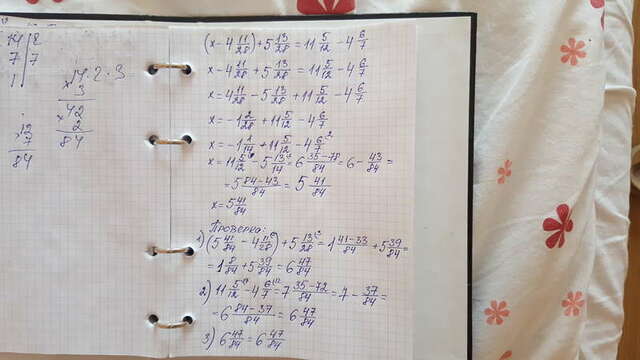 14 | 2
7 | 7
1
14 · 2 · 3
× 3
× 42
2
84
× 12
7
84
(x - 4 11/28) + 5 13/28 = 11 5/12 - 4 6/7
x - 4 11/28 + 5 13/28 = 11 5/12 - 4 6/7
x = 4 11/28 - 5 13/28 + 11 5/12 - 4 6/7
x = -1 2/28 + 11 5/12 - 4 6/7
x = -1 1/14 + 11 5/12 - 4 6/7
x = 11 5/12 - 5 13/14 = 6 35-78/84 = 6 - 43/84 =
= 5 84-43/84 = 5 41/84
x = 5 41/84
Проверка:
1) (5 41/84 - 4 11/28) + 5 13/28 = 1 41-33/84 + 5 39/84 =
= 1 8/84 + 5 39/84 = 6 47/84
2) 11 5/12 - 4 6/7 = 7 35-72/84 = 7 - 37/84 =
= 6 84-37/84 = 6 47/84
3) 6 47/84 = 6 47/84